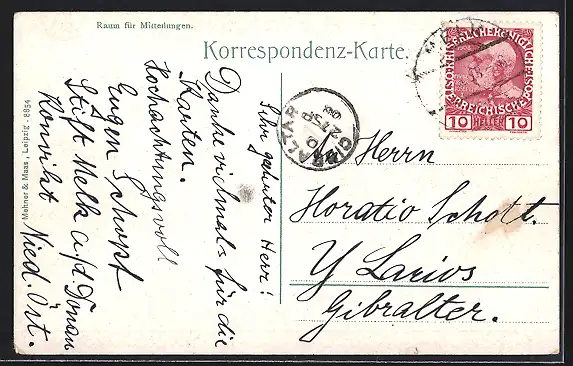 Raum für Mitteilungen.
Korrespondenz-Karte.
Sehr geehrter Herr!
Danke vielmals für die
Karten.
Hochachtungsvoll
Eugen Schopf
Stift Melk a/d Donau
Konvikt Nied. Öst.
Mehner & Maas, Leipzig 8854
GIBRALTAR
SP
08
10 HELLER 10
Herrn
Horatio Schott.
Y Larios
Gibralter.